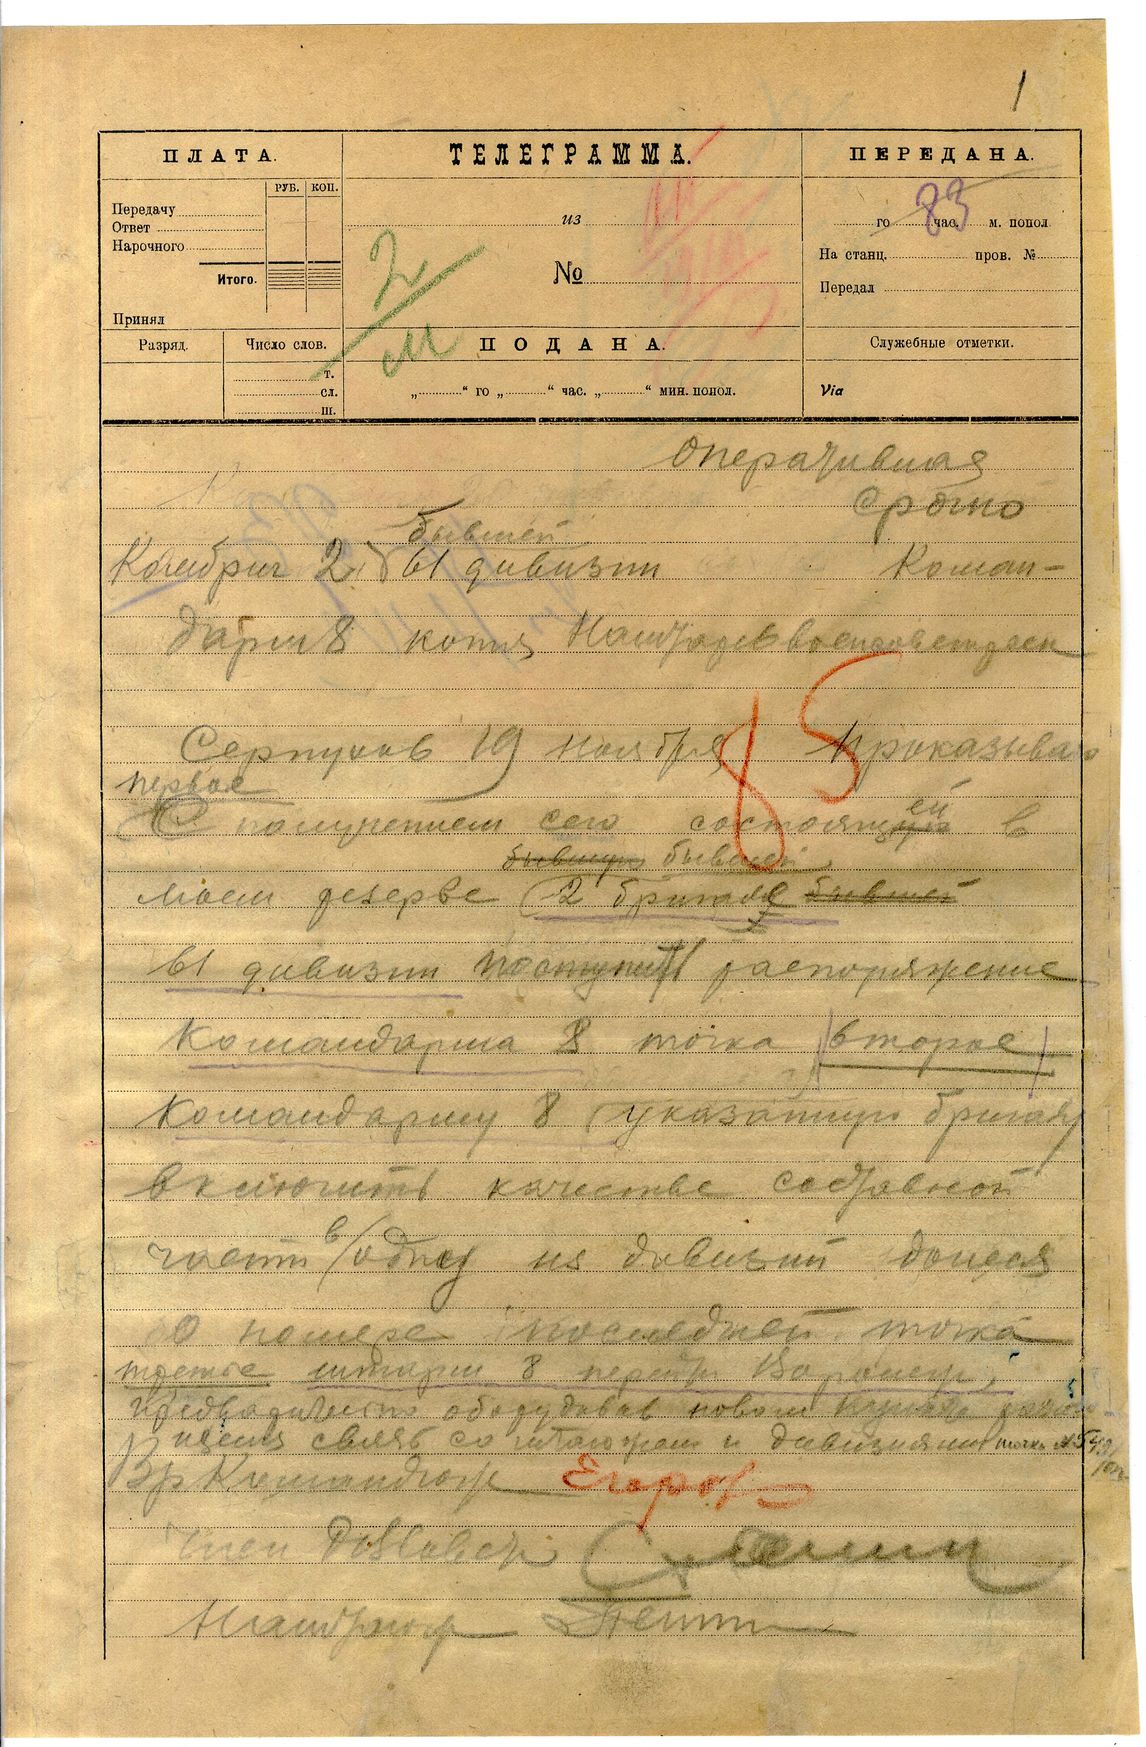 1
ПЛАТА.
ТЕЛЕГРАММА.
ПЕРЕДАНА.
РУБ. КОП.
Передачу
Ответ
Нарочного
Итого.
Принял
из
№
2/м
83
го час. м. попол.
На станц. пров. №
Передал
Разряд.
Число слов.
ПОДАНА.
Служебные отметки.
т.
сл.
ш.
„ “ го „ “ час. „ “ мин. попол.
Via
Оперативная
Срочно
бывшей
Комбриг 2 61 дивизии Коман-
дарм 8 копия
85
Серпухов 19 ноября Приказываю
первое
С получением сего состоящей в
бывшую бывшей
моем резерве 2 бригаде бывшей
61 дивизии поступить распоряжение
Командарма 8 точка второе
Командарму 8 указанную бригаду
включить качестве составной
части в одну из дивизий донеся
О номере последней точка
третье штарм 8 перейти Воронеж,
предварительно оборудовав новом пункте
связь со и дивизиями точка №
Вр Командюж Егоров
Член Сталин
Наштаюж